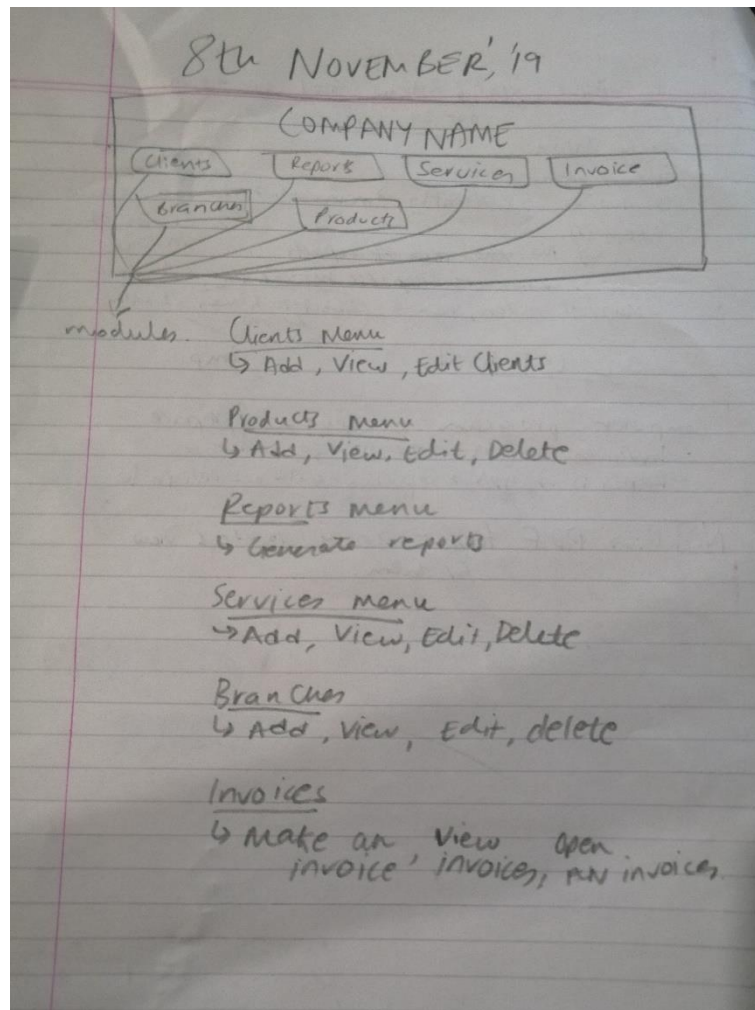 8th NOVEMBER, '19
COMPANY NAME
Clients Reports Services Invoice
Branches Products
modules. Clients Menu
↳ Add, View, Edit Clients
Products menu
↳ Add, View, Edit, Delete
Reports menu
↳ Generate reports
Services menu
↳ Add, View, Edit, Delete
Branches
↳ Add, View, Edit, delete
Invoices
↳ Make an View open
invoice, invoices, invoices